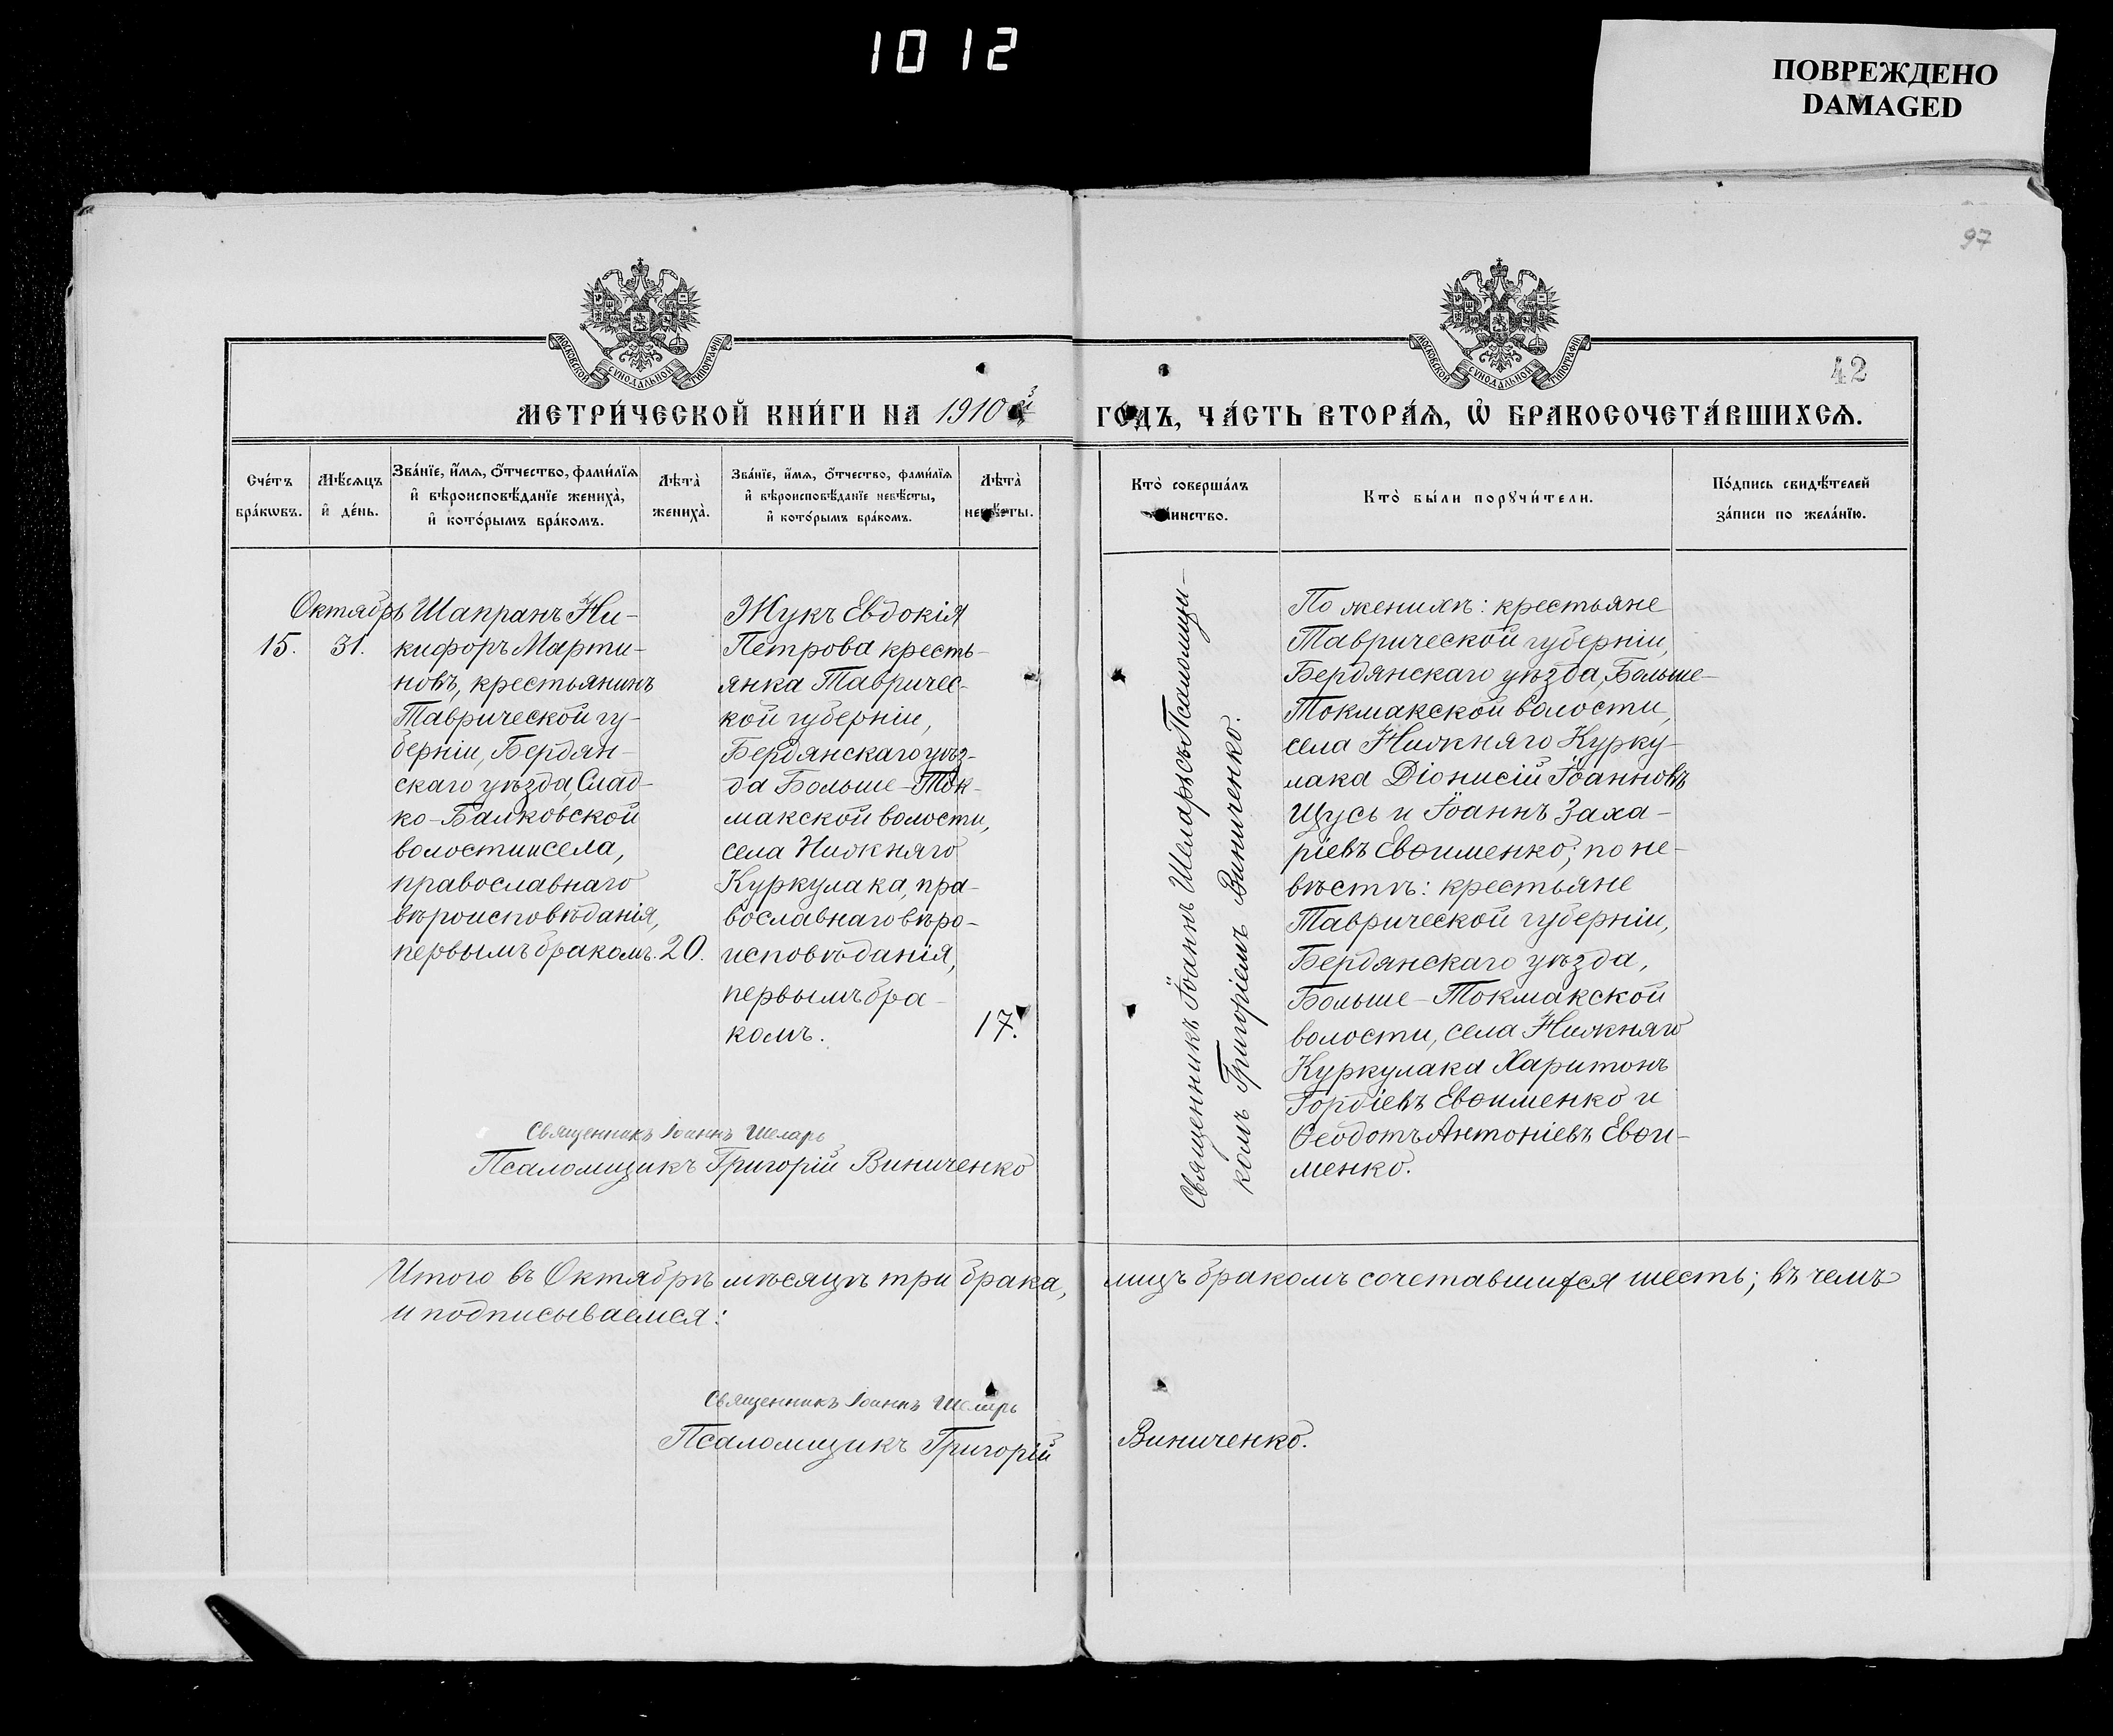 1012
ПОВРЕЖДЕНО
DAMAGED
97
МОСКОВСКОЙ СѴНОДАЛЬНОЙ ТИПОГРАФІИ
МОСКОВСКОЙ СѴНОДАЛЬНОЙ ТИПОГРАФІИ
42
МЕТРИ́ЧЕСКОЙ КНИ́ГИ НА 1910й
ГОДЪ, ЧА́СТЬ ВТОРА́Ѧ, Ѡ БРАКОСОЧЕТА́ВШИХСѦ.
Сче́тъ
бра́кѡвъ.
Мѣ́сѧцъ
и҆ де́нь.
Зва́нїе, и҆́мѧ, о҆́тчество, фами́лїѧ
и҆ вѣроисповѣ́данїе жениха̀,
и҆ кото́рымъ бра́комъ.
Лѣта̀
жениха̀.
Зва́нїе, и҆́мѧ, о҆́тчество, фами́лїѧ
и҆ вѣроисповѣ́данїе невѣ́сты,
и҆ кото́рымъ бра́комъ.
Лѣта̀
невѣ́сты.
Кто̀ соверша́лъ
таинство.
Кто̀ бы́ли порꙋчи́тели.
По́дпись свидѣ́телей
за́писи по жела́нїю.
Октябрь
15. 31.
Шапранъ Ни-
кифоръ Марти-
новъ, крестьянинъ
Таврической гу-
берніи, Бердян-
скаго уѣзда, Слад-
ко-Балковской
волости и села,
православнаго
вѣроисповѣданія,
первымъ бракомъ. 20.
Жукъ Евдокія
Петрова кресть-
янка Тавричес-
кой губерніи,
Бердянскаго уѣз-
да Больше-Ток-
макской волости,
села Нижняго
Куркулака, пра-
вославнаго вѣро-
исповѣданія,
первымъ бра-
комъ. 17.
Священникъ Іоаннъ Шеларь съ Псаломщи-
комъ Григоріемъ Виниченко.
По женихѣ: крестьяне
Таврической губерніи,
Бердянскаго уѣзда, Больше-
Токмакской волости,
села Нижняго Курку-
лака Діонисій Іоанновъ
Щусь и Іоаннъ Заха-
ріевъ Евѳименко; по не-
вѣстѣ: крестьяне
Таврической губерніи,
Бердянскаго уѣзда,
Больше-Токмакской
волости, села Нижняго
Куркулака Харитонъ
Гордіевъ Евѳименко и
Ѳеодотъ Антоніевъ Евѳи-
менко.
Священникъ Іоаннъ Шеларь
Псаломщикъ Григорій Виниченко
Итого въ Октябрѣ мѣсяцѣ три брака, лицъ бракомъ сочетавшихся шесть; въ чемъ
и подписываемся:
Священникъ Іоаннъ Шеларь
Псаломщикъ Григорій Виниченко.